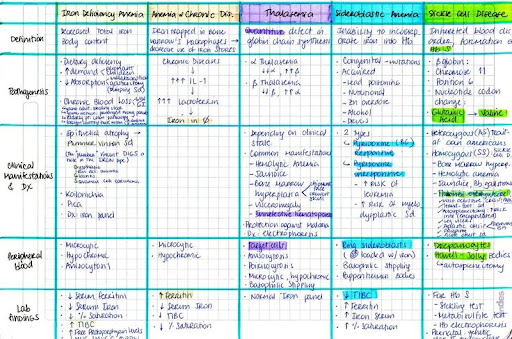 Iron Deficiency Anemia
Anemia of Chronic Dis.
Thalassemia
Sideroblastic Anemia
Sickle Cell Disease
Definition
Decreased Total iron
body content
Iron trapped in bone
marrow's macrophages →
decrease use of iron stores
Quantitative defect in
globin chain synthesis
Inability to incorpo
rate iron into Hb
Inherited blood dis
order, formation of
Hb S
Pathogenesis
Dietary deficiency
↑ demand
↓ Absorption
Chronic Blood Loss
Chronic Diseases
↑↑↑ IL-1
↑↑↑ Lactoferrin
Iron in
α Thalassemia
↓↓α, ↑↑β
β Thalassemia
↓↓β, ↑↑α
Congenital mutations
Acquired
Lead poisoning
Nutritional
Zn overdose
Alcohol
Drugs
β globin:
Chromosome 11
Position 6
Nucleotide codon
change:
Glutamic acid → Valine
Clinical
Manifestations
& Dx
Epithelial atrophy →
Plummer Vinson Sd
Koilonychia
Pica
Dx iron panel
Depending on clinical
state
Common manifestations
Hemolytic Anemia
Jaundice
Bone Marrow
hyperplasia
Visceromegaly
Ineffective hematopoiesis
Protection against Malaria
Dx: Electrophoresis
2 Types
Pyridoxine (B6)
Responsive
Pyridoxine
unresponsive
↑ Risk of
leukemia
↑ Risk of myelo
dysplastic Sd
Heterozygous (AS) Trait
Homozygous (SS)
Bone Marrow hyperp.
Hemolytic anemia
Jaundice, Bb gallstones
Peripheral
Blood
Microcytic
Hypochromic
Anisocytosis
Microcytic
Hypochromic
Target cells
Anisocytosis
Poikilocytosis
Microcytic, hypochromic
Basophilic Stippling
Ring sideroblasts
loaded w/ iron)
Basophilic Stippling
Pappenheimer bodies
Drepanocyte
Howell-Jolly Bodies
autosplenectomy
Lab
findings
↓ Serum Ferritin
↓ Serum Iron
↓ % Saturation
↑ TIBC
↑ Free Protoporphyrin levels
↑ Ferritin
↓ Serum Iron
↓ TIBC
↓ % Saturation
Normal Iron panel
↓ TIBC
↑ Ferritin
↑ Iron Serum
↑ % Saturation
For Hb S
Sickling test
Metabisulfite test
Hb electrophoresis
Prenatal genetic